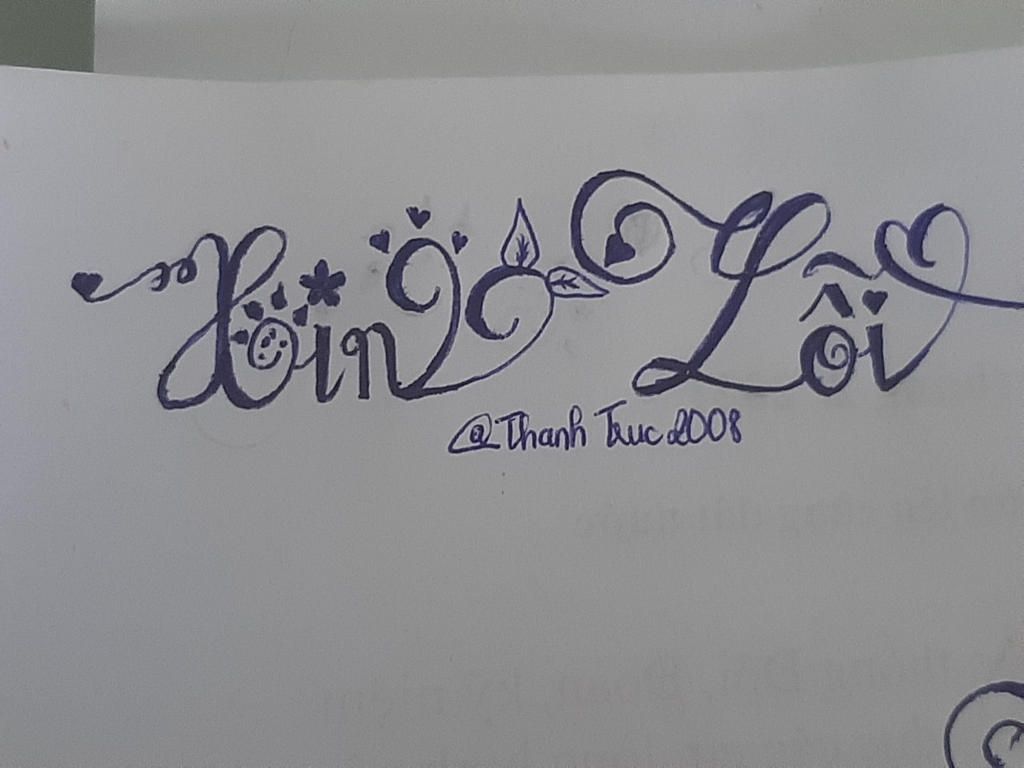 Xin Lỗi
@Thanh Truc 2008